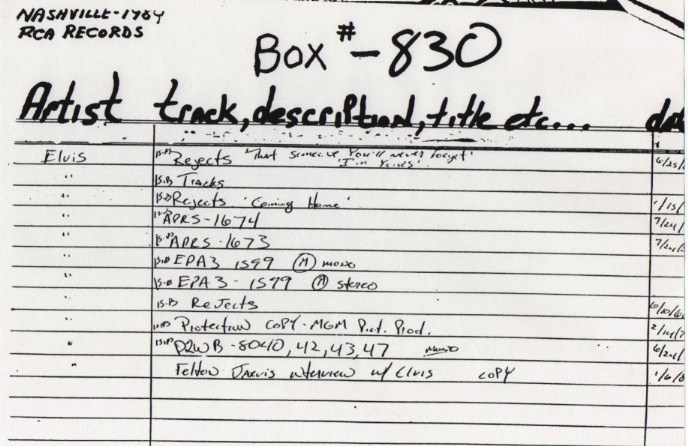 NASHVILLE-1984
RCA RECORDS
Box #-830
Artist track, description, title etc... dat
Elvis Rejects "That someone You'll never forget" 6/25/
"I'm Yours"
" Tracks
" Rejects "Coming Home" 1/15/
" APRS-1674 7/24/
" APRS-1673 7/24/
" EPA3 1599 (M) mono
" EPA3-1599 (M) stereo
" Rejects
" Protection COPY-MGM Pict. Prod. 2/14/7
" D2WB-8040, 42, 43, 47 mono 6/24/
" Felton Jarvis interview w/ Elvis COPY 1/6/8